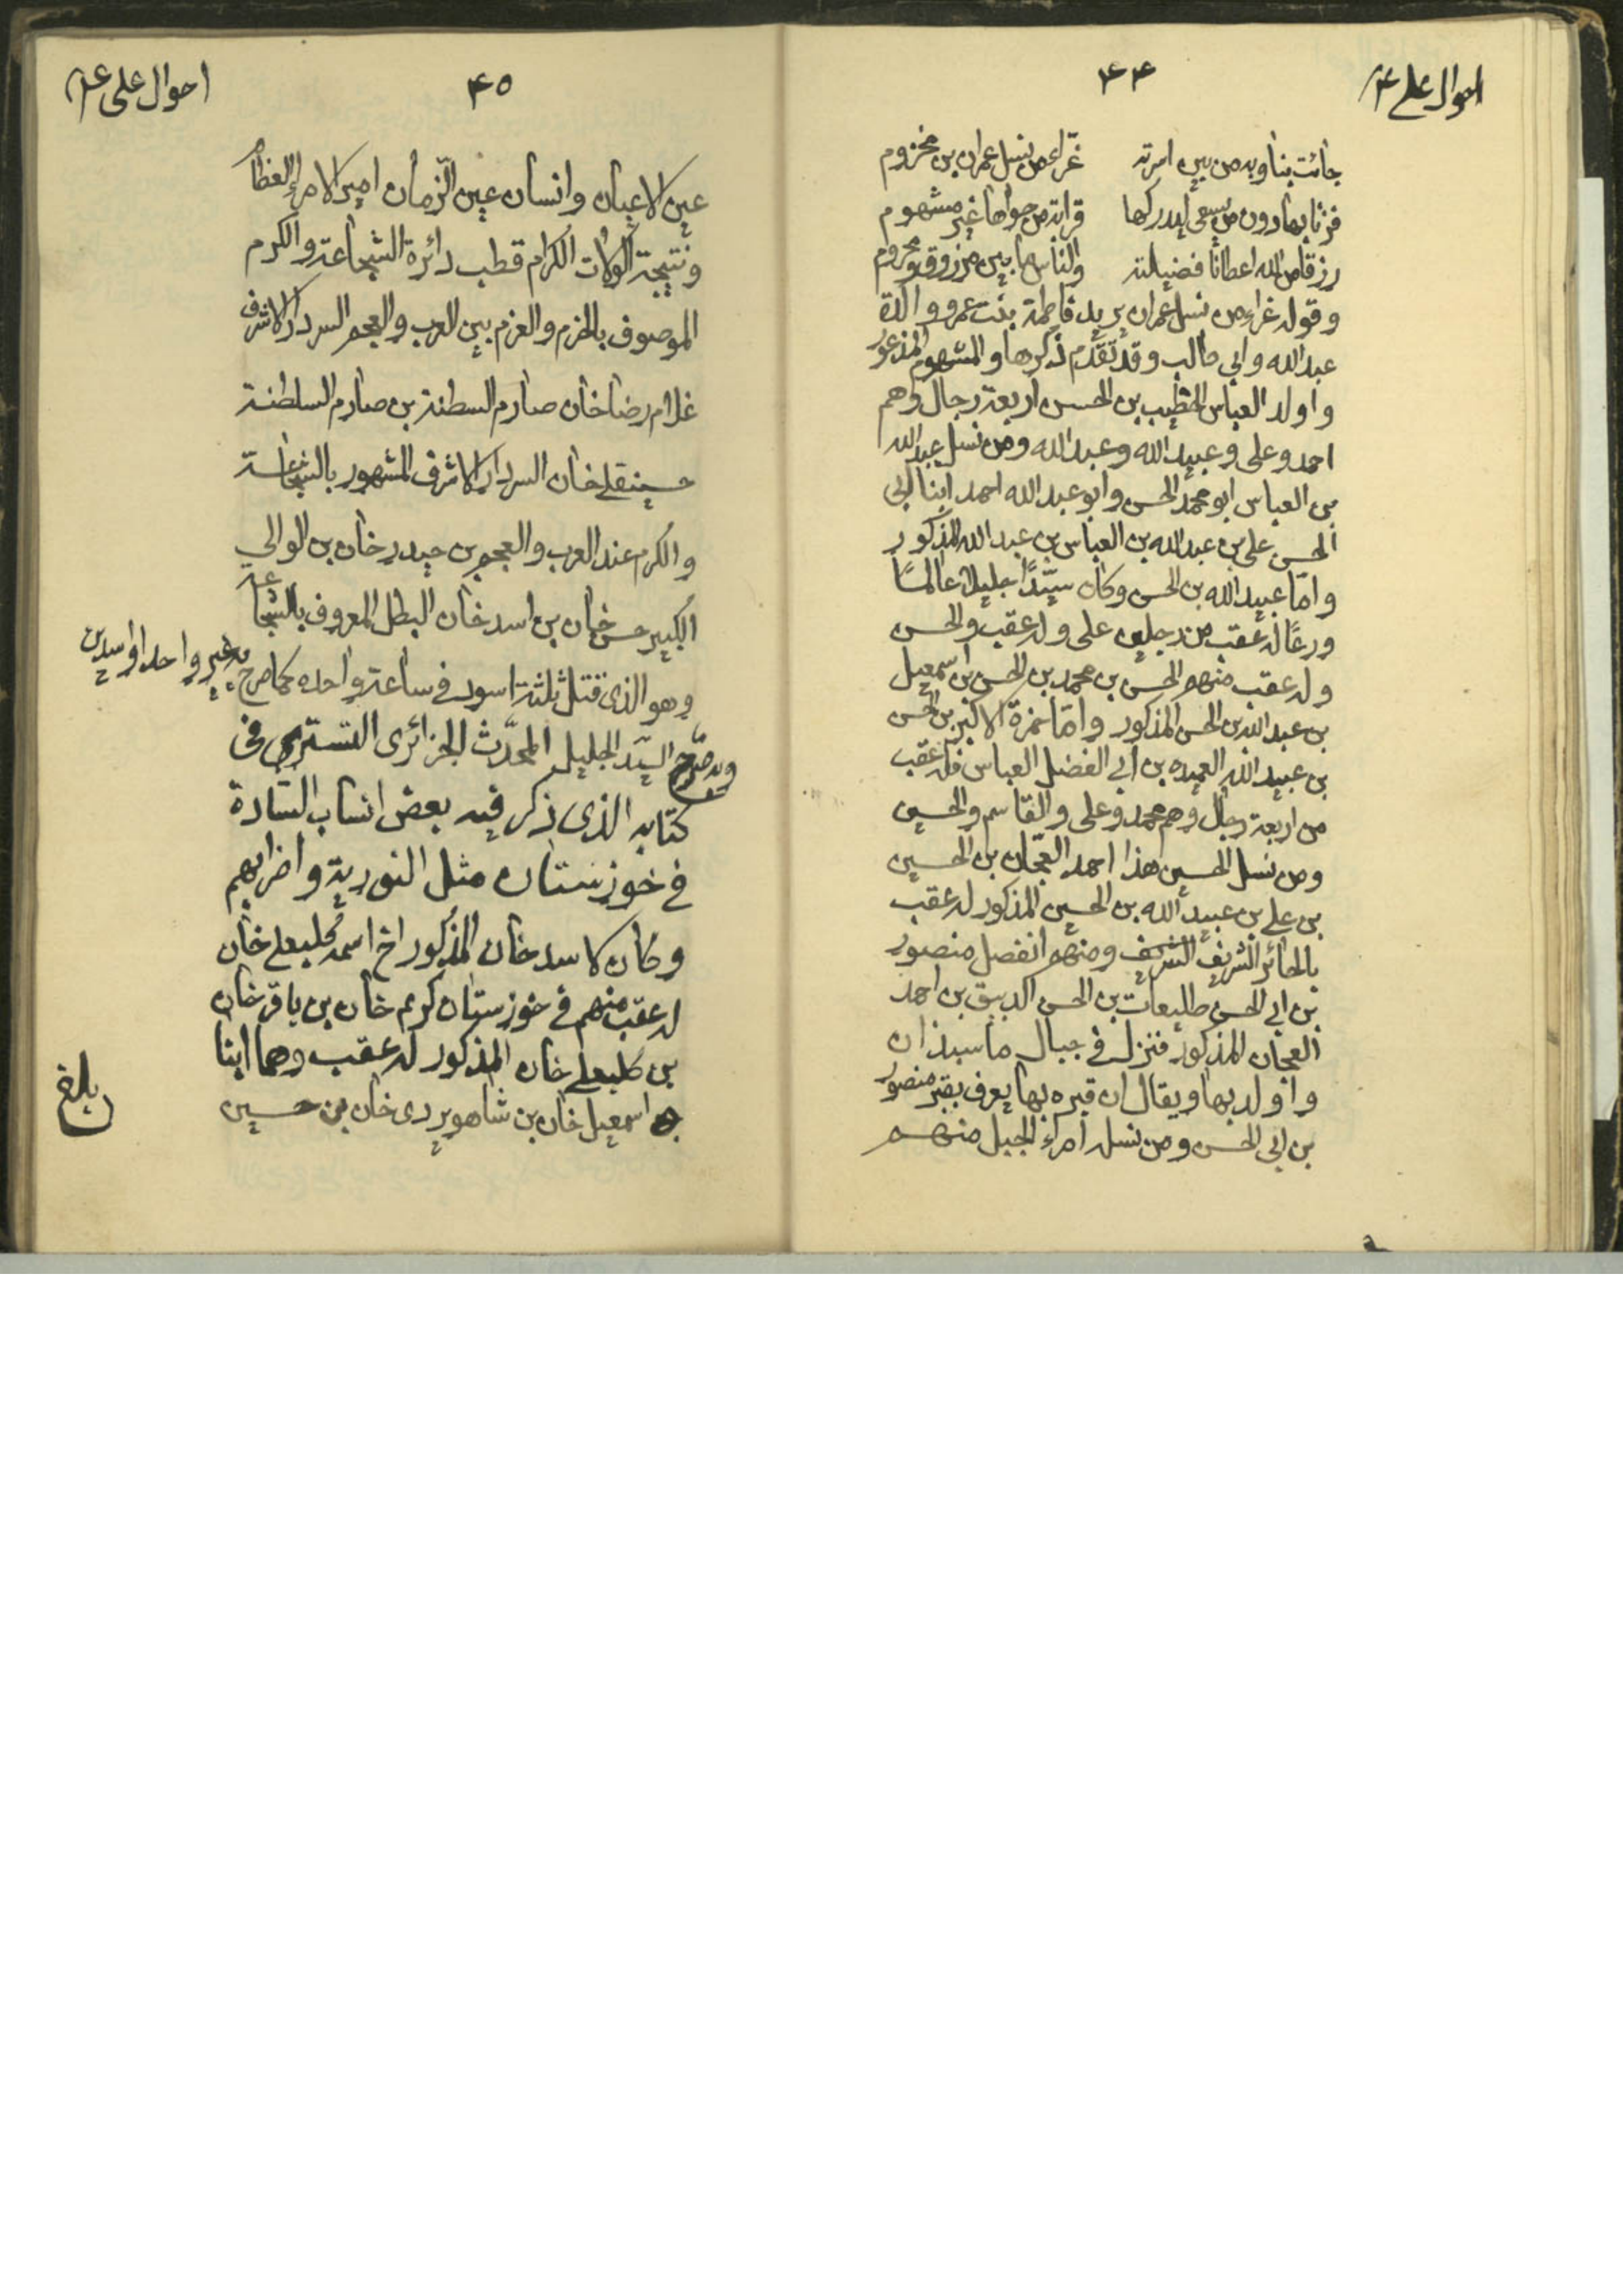 احوال علی ع
۴۴
جائت بنا وبه من بين اسرته غرّاء من نسل عمران بن مخزوم
فزنا بها دون من يسعى ليدركها قرابة من حواها غير مشهوم
رزقا من الله اعطانا فضيلته والناس ما بين مرزوق ومحروم
وقوله غراء من نسل عمران يريد فاطمة بنت عمرو والدة
عبدالله وابي طالب وقد تقدّم ذكرها والمشهوم المذعور
واولد العباس الخطيب بن الحسن اربعة رجال وهم
احمد وعلى وعبيد الله وعبد الله ومن نسل عبد الله
بن العباس ابو محمد الحسن وابو عبد الله احمد ابنا ابي
الحسن على بن عبد الله بن العباس بن عبد الله المذكور
وامّا عبيد الله بن الحسن وكان سيّدًا جليلا عالمًا
ورعًا له عقب من رجلين على وله عقب والحسن
وله عقب منهم الحسن بن محمد بن الحسن بن اسمعيل
بن عبد الله بن الحسن المذكور وامّا حمزة الاكبر بن الحسن
بن عبيد الله العميد بن ابي الفضل العباس فله عقب
من اربعة رجال وهم محمد وعلى والقاسم والحسين
ومن نسل الحسين هذا احمد العجان بن الحسين
بن علي بن عبيد الله بن الحسين المذكور له عقب
بالحائر الشريف ومنهم انفصل منصور
بن ابي الحسن طليعات بن الحسن الدبيق بن احمد
العجان المذكور فنزل في جبال ماسبذان
واولد بها ويقال ان قبره بها يعرف بقبر منصور
بن ابي الحسن ومن نسله امراء الجبل منهم
احوال علی ع
۴۵
عين الاعيان وانسان عين الزمان امير الامراء العظام
ونتيجة الولاة الكرام قطب دائرة الشجاعة والكرم
الموصوف بالحزم والعزم بين العرب والعجم السردار الاشرف
غلام رضا خان صارم السطنة بن صارم السلطنة
حسينقلي خان السردار الاشرف المشهور بالشجاعة
والكرم عند العرب والعجم بن حيدر خان بن الوالي
الكبير حسن خان بن اسد خان البطل المعروف بالشجاعة
وهو الذى قتل ثلثة اسود في ساعة واحده كما صرح به غير واحد او اسدين
وبه صرّح السيّد الجليل المحدّث الجزائرى التستري فى
كتابه الذى ذكر فيه بعض انساب السّادة
في خوزستان مثل النورية واضرابهم
وكان لاسد خان المذكور اخ اسمه كلبعلي خان
له عقب منهم في خوزستان كريم خان بن باقر خان
بن كلبعلي خان المذكور له عقب وهما ابنا
اسمعيل خان بن شاهويردى خان بن حسين
بلغ